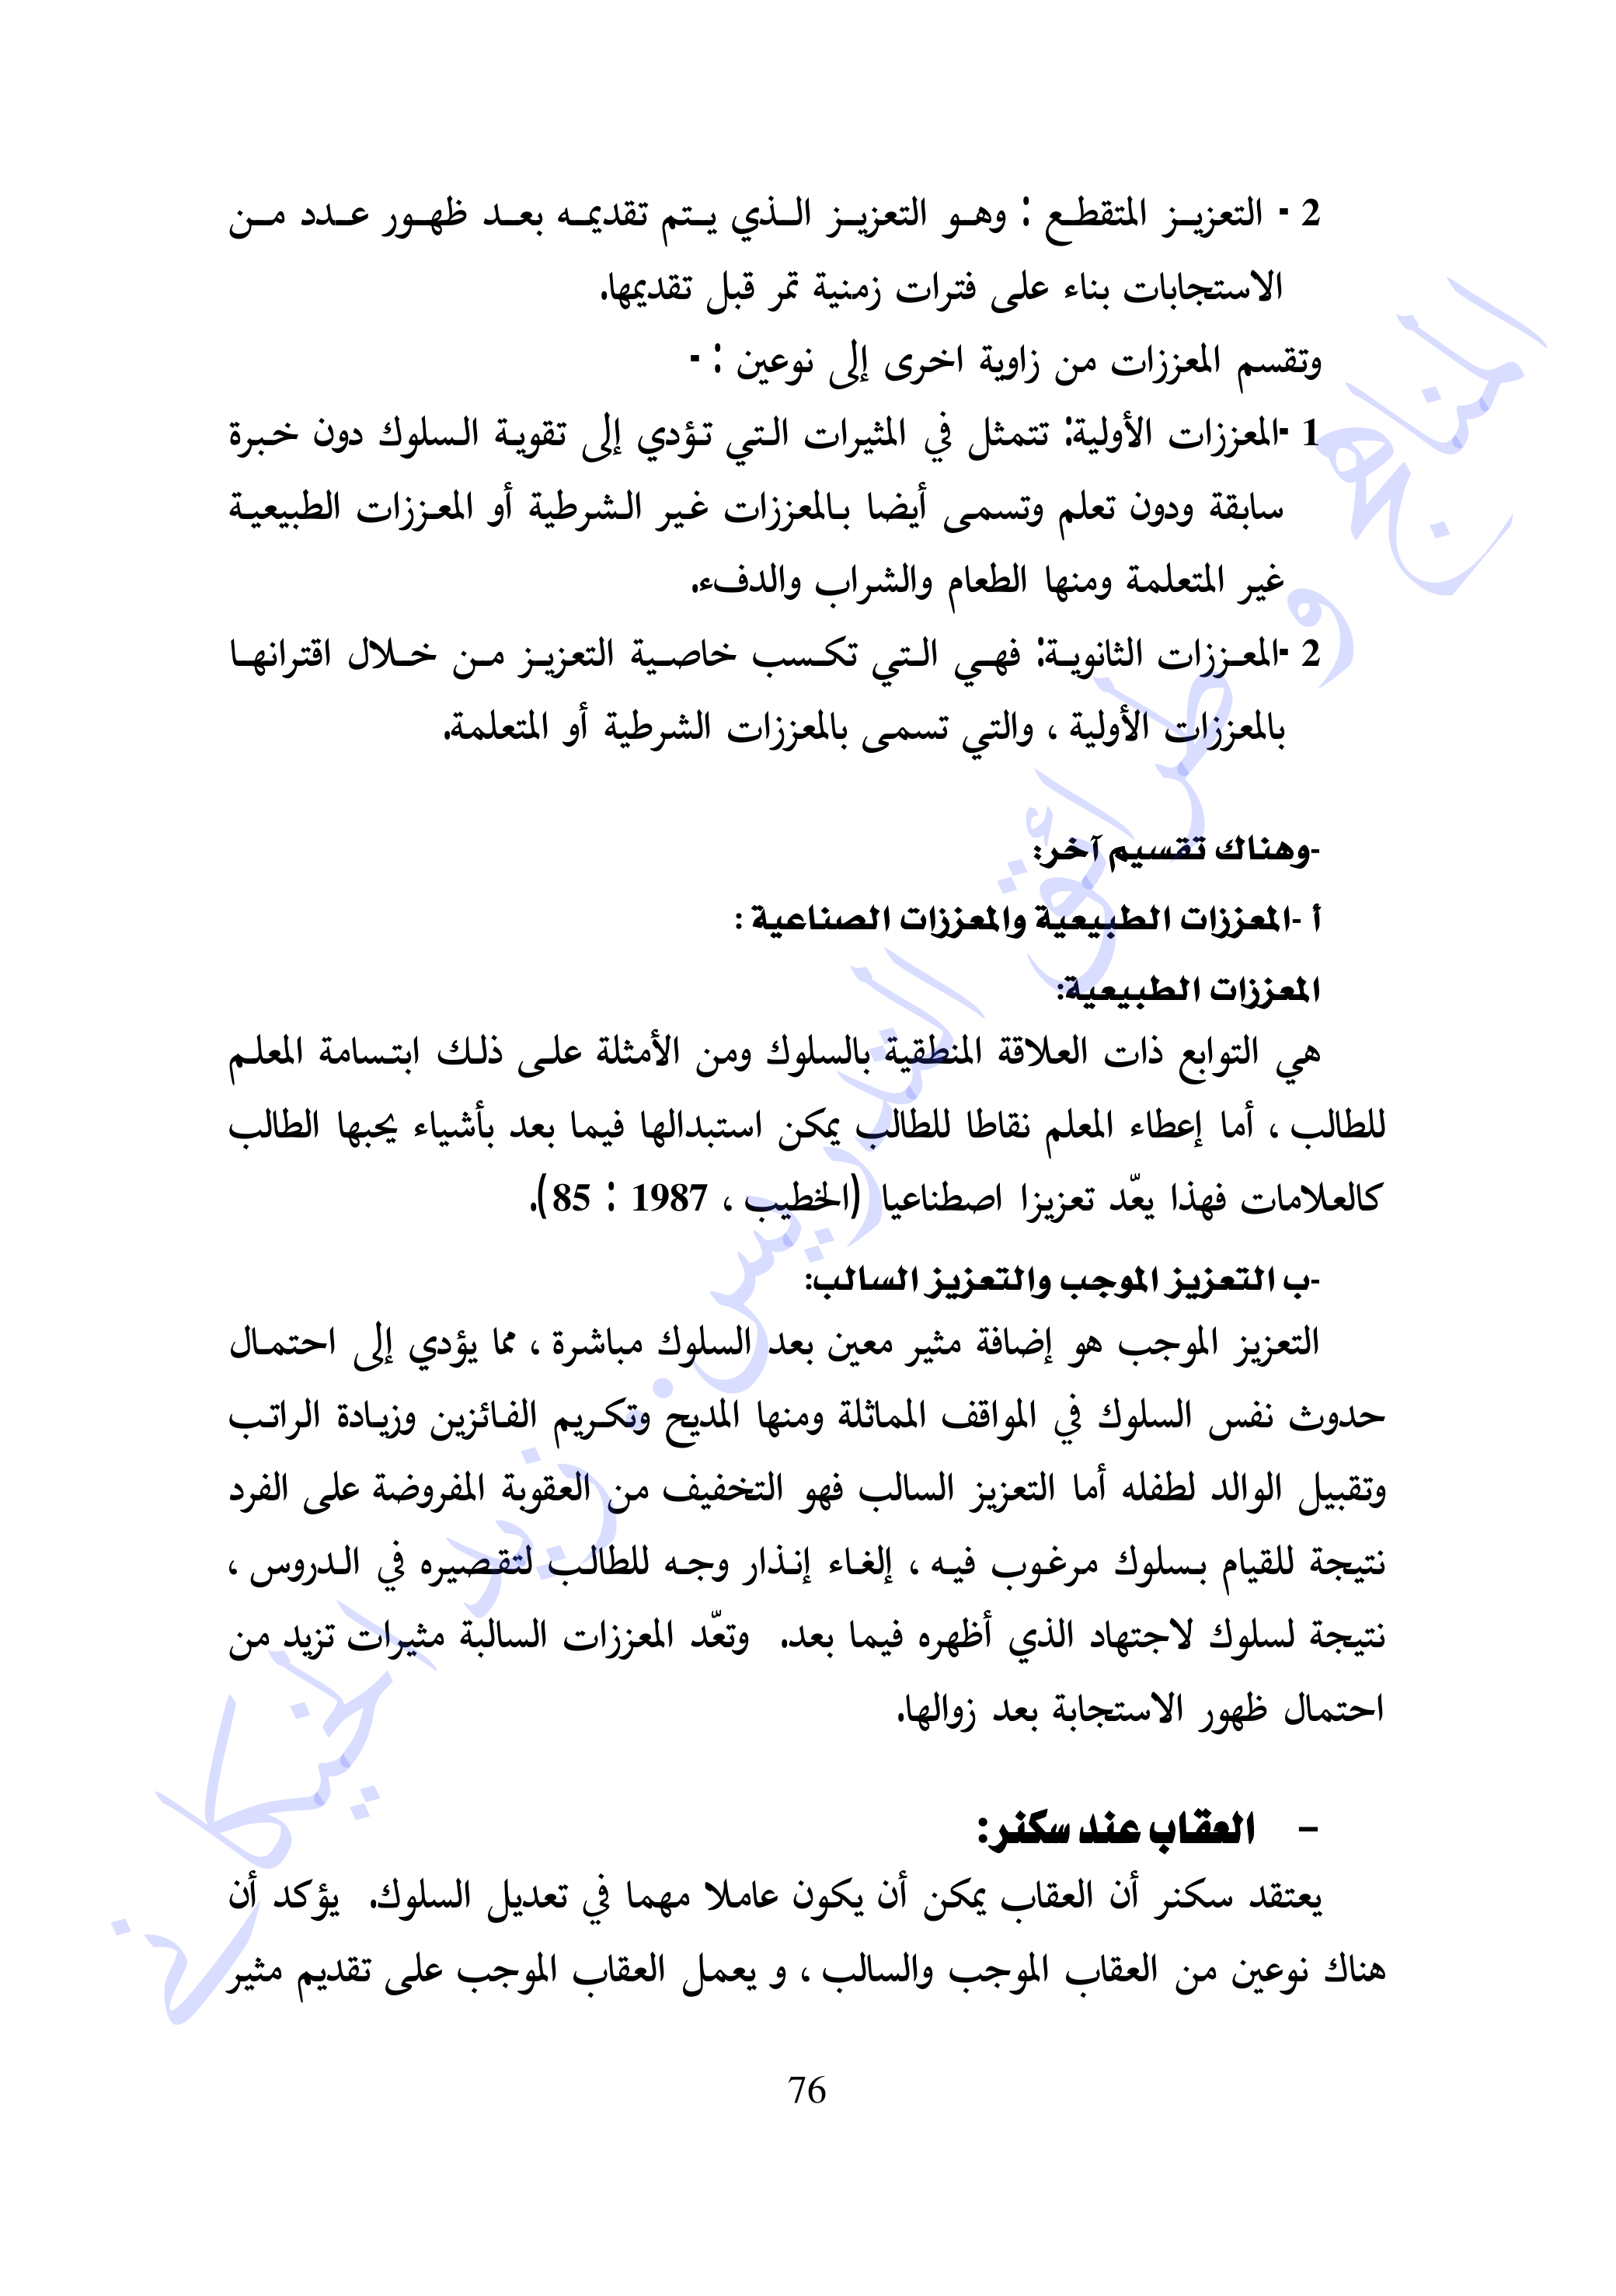 2 - التعزيز المتقطع : وهو التعزيز الذي يتم تقديمه بعد ظهور عدد من
الاستجابات بناء على فترات زمنية تمر قبل تقديمها.
وتقسم المعززات من زاوية اخرى إلى نوعين : -
1 -المعززات الأولية: تتمثل في المثيرات التي تؤدي إلى تقوية السلوك دون خبرة
سابقة ودون تعلم وتسمى أيضا بالمعززات غير الشرطية أو المعززات الطبيعية
غير المتعلمة ومنها الطعام والشراب والدفء.
2 -المعززات الثانوية: فهي التي تكسب خاصية التعزيز من خلال اقترانها
بالمعززات الأولية ، والتي تسمى بالمعززات الشرطية أو المتعلمة.
-وهناك تقسيم آخر:
أ -المعززات الطبيعية والمعززات الصناعية :
المعززات الطبيعية:
هي التوابع ذات العلاقة المنطقية بالسلوك ومن الأمثلة على ذلك ابتسامة المعلم
للطالب ، أما إعطاء المعلم نقاطا للطالب يمكن استبدالها فيما بعد بأشياء يحبها الطالب
كالعلامات فهذا يعّد تعزيزا اصطناعيا (الخطيب ، 1987 : 85).
-ب التعزيز الموجب والتعزيز السالب:
التعزيز الموجب هو إضافة مثير معين بعد السلوك مباشرة ، مما يؤدي إلى احتمال
حدوث نفس السلوك في المواقف المماثلة ومنها المديح وتكريم الفائزين وزيادة الراتب
وتقبيل الوالد لطفله أما التعزيز السالب فهو التخفيف من العقوبة المفروضة على الفرد
نتيجة للقيام بسلوك مرغوب فيه ، إلغاء إنذار وجه للطالب لتقصيره في الدروس ،
نتيجة لسلوك لاجتهاد الذي أظهره فيما بعد. وتعّد المعززات السالبة مثيرات تزيد من
احتمال ظهور الاستجابة بعد زوالها.
– العقاب عند سكنر:
يعتقد سكنر أن العقاب يمكن أن يكون عاملا مهما في تعديل السلوك. يؤكد أن
هناك نوعين من العقاب الموجب والسالب ، و يعمل العقاب الموجب على تقديم مثير
76